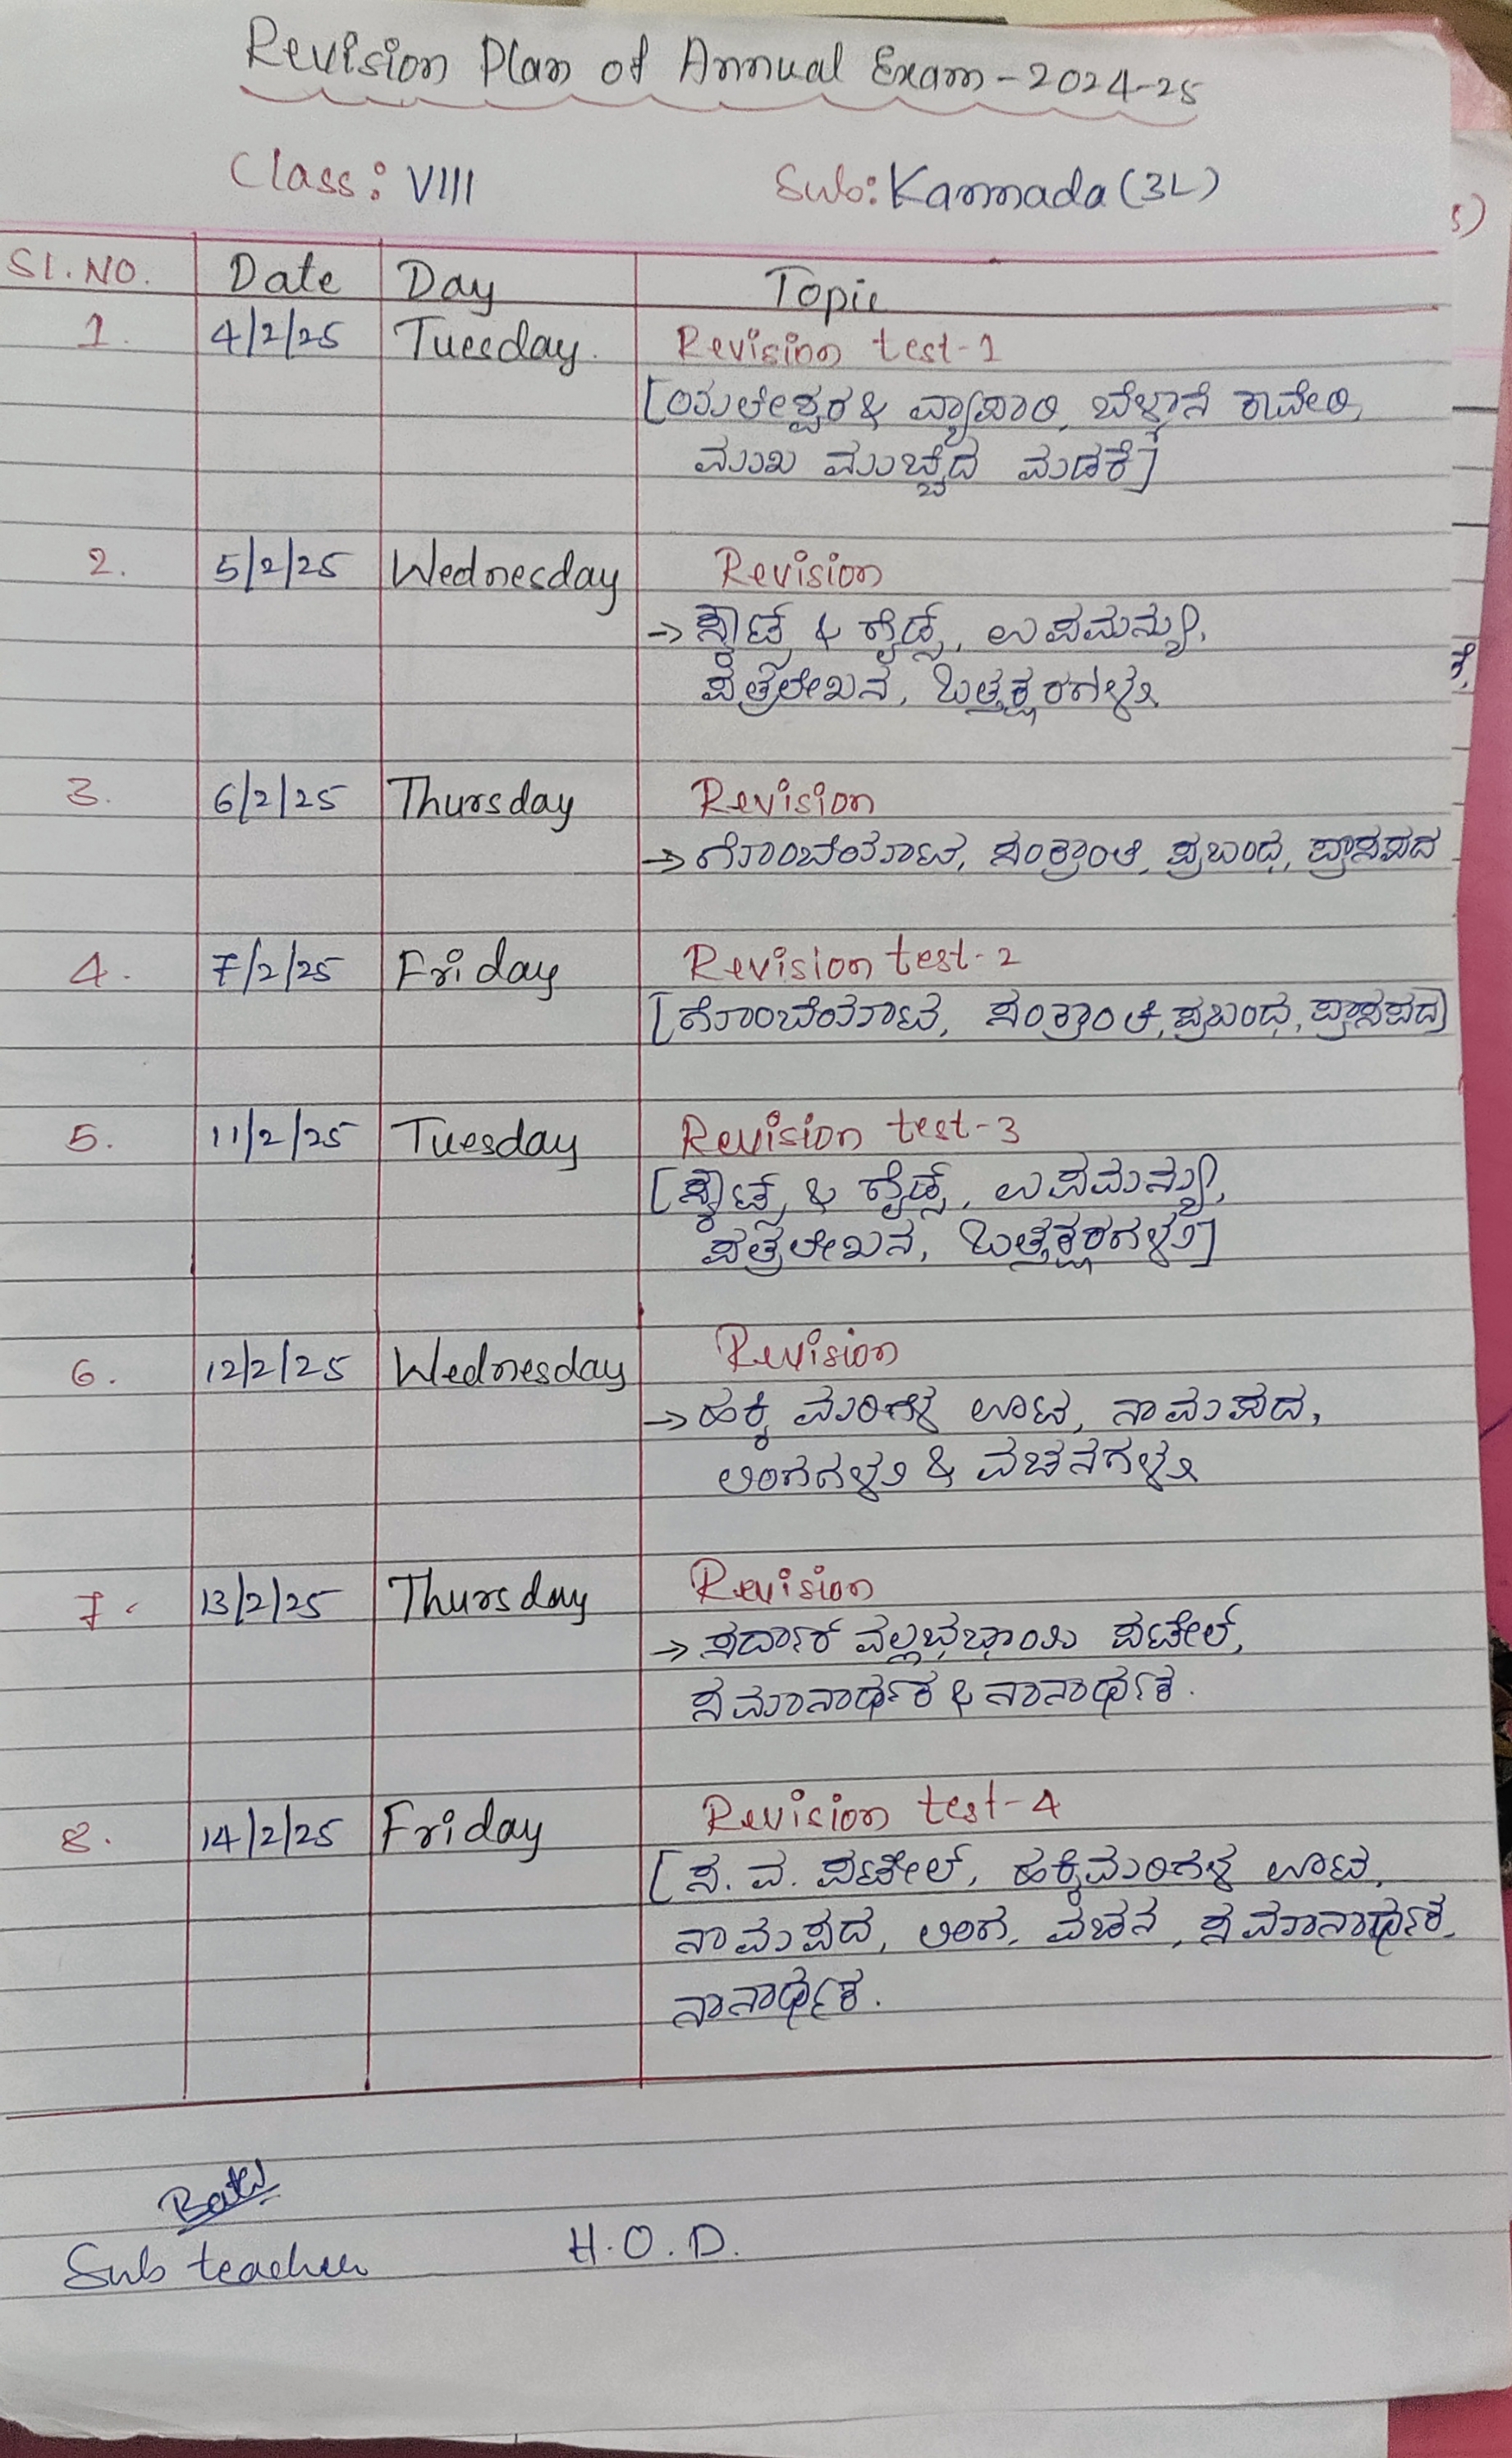 Revision Plan of Annual Exam-2024-25
Class: VIII Sub: Kannada (3L)
Sl.NO. Date Day Topic
1. 4/2/25 Tuesday. Revision test-1
& ವ್ಯಾಪಾರಿ, ಬೆಳ್ಳಾನೆ ಕಾವೇರಿ,
ಮುಖ ಮುಚ್ಚಿದ ಮಡಕೆ]
2. 5/2/25 Wednesday Revision
→ ಸ್ಕೌಟ್ಸ್ & ಗೈಡ್ಸ್, ಉಪಮನ್ಯು,
ಪತ್ರಲೇಖನ, ಒತ್ತಕ್ಷರಗಳು
3. 6/2/25 Thursday Revision
→ ಗೊಂಬೆಯಾಟ, ಸಂಕ್ರಾಂತಿ, ಪ್ರಬಂಧ, ಪ್ರಾಸಪದ
4. 7/2/25 Friday Revision test-2
[ಗೊಂಬೆಯಾಟ, ಸಂಕ್ರಾಂತಿ, ಪ್ರಬಂಧ, ಪ್ರಾಸಪದ]
5. 11/2/25 Tuesday Revision test-3
[ಸ್ಕೌಟ್ಸ್ & ಗೈಡ್ಸ್, ಉಪಮನ್ಯು,
ಪತ್ರಲೇಖನ, ಒತ್ತಕ್ಷರಗಳು]
6. 12/2/25 Wednesday Revision
→ ಹಕ್ಕಿ ಮರಿಗಳ ಊಟ, ನಾಮಪದ,
ಲಿಂಗಗಳು & ವಚನಗಳು
7. 13/2/25 Thursday Revision
→ ಸರ್ದಾರ್ ವಲ್ಲಭಭಾಯಿ ಪಟೇಲ್,
ಸಮಾನಾರ್ಥಕ & ನಾನಾರ್ಥಕ.
8. 14/2/25 Friday Revision test-4
[ಸ. ವ. ಪಟೇಲ್, ಹಕ್ಕಿಮರಿಗಳ ಊಟ,
ನಾಮಪದ, ಲಿಂಗ, ವಚನ, ಸಮಾನಾರ್ಥಕ,
ನಾನಾರ್ಥಕ.
Sub teacher H.O.D.